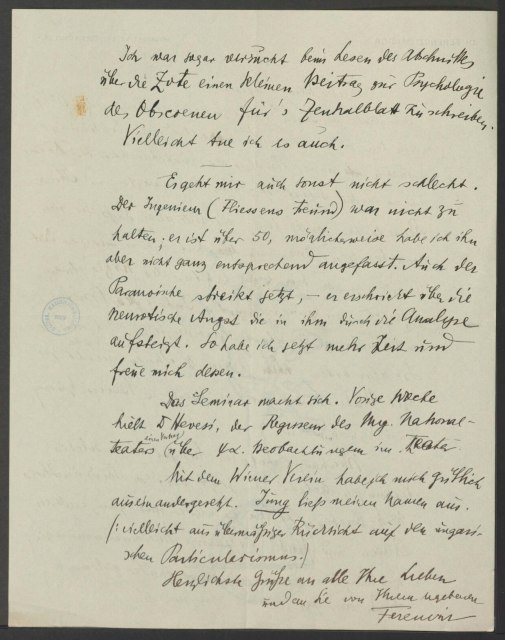 Ich war sogar versucht beim Lesen des Abschnittes
über die Zote einen kleinen Beitrag zur Psychologie
des Obscoenen für's Zentralblatt zu schreiben.
Vielleicht tue ich es auch.
Es geht mir auch sonst nicht schlecht.
Der Ingenieur (Fliessens Freund) war nicht zu
halten; er ist über 50, möglicherweise habe ich ihn
aber nicht ganz entsprechend angefasst. Auch der
Paranoische streikt jetzt, – er erschrickt über die
neurotische Angst die in ihm durch die Analyse
aufsteigt. So habe ich jetzt mehr Zeit und
freue mich dessen.
Das Seminar macht sich. Vorige Woche
hielt Dr Hevesi, der Regisseur des Ung. National-
teaters einen Vortrag über ψα. Beobachtungen im Teater.
Mit dem Wiener Verein habe ich mich gütlich
auseinandergesetzt. Jung liess meinen Namen aus.
(: vielleicht aus übermässiger Rücksicht auf den ungari-
schen Particularismus.)
Herzlichste Grüsse an alle Ihre Lieben
und an Sie von Ihrem ergebenen
Ferenczi